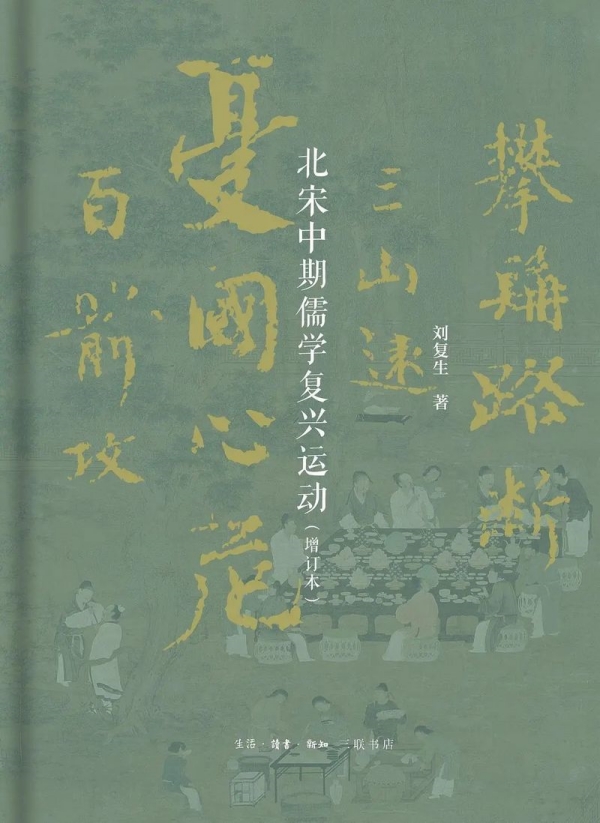 攀路斷
三山遠
憂國心危
百箭攻
北宋中期儒学复兴运动（增订本）
刘复生 著
生活·讀書·新知 三联书店